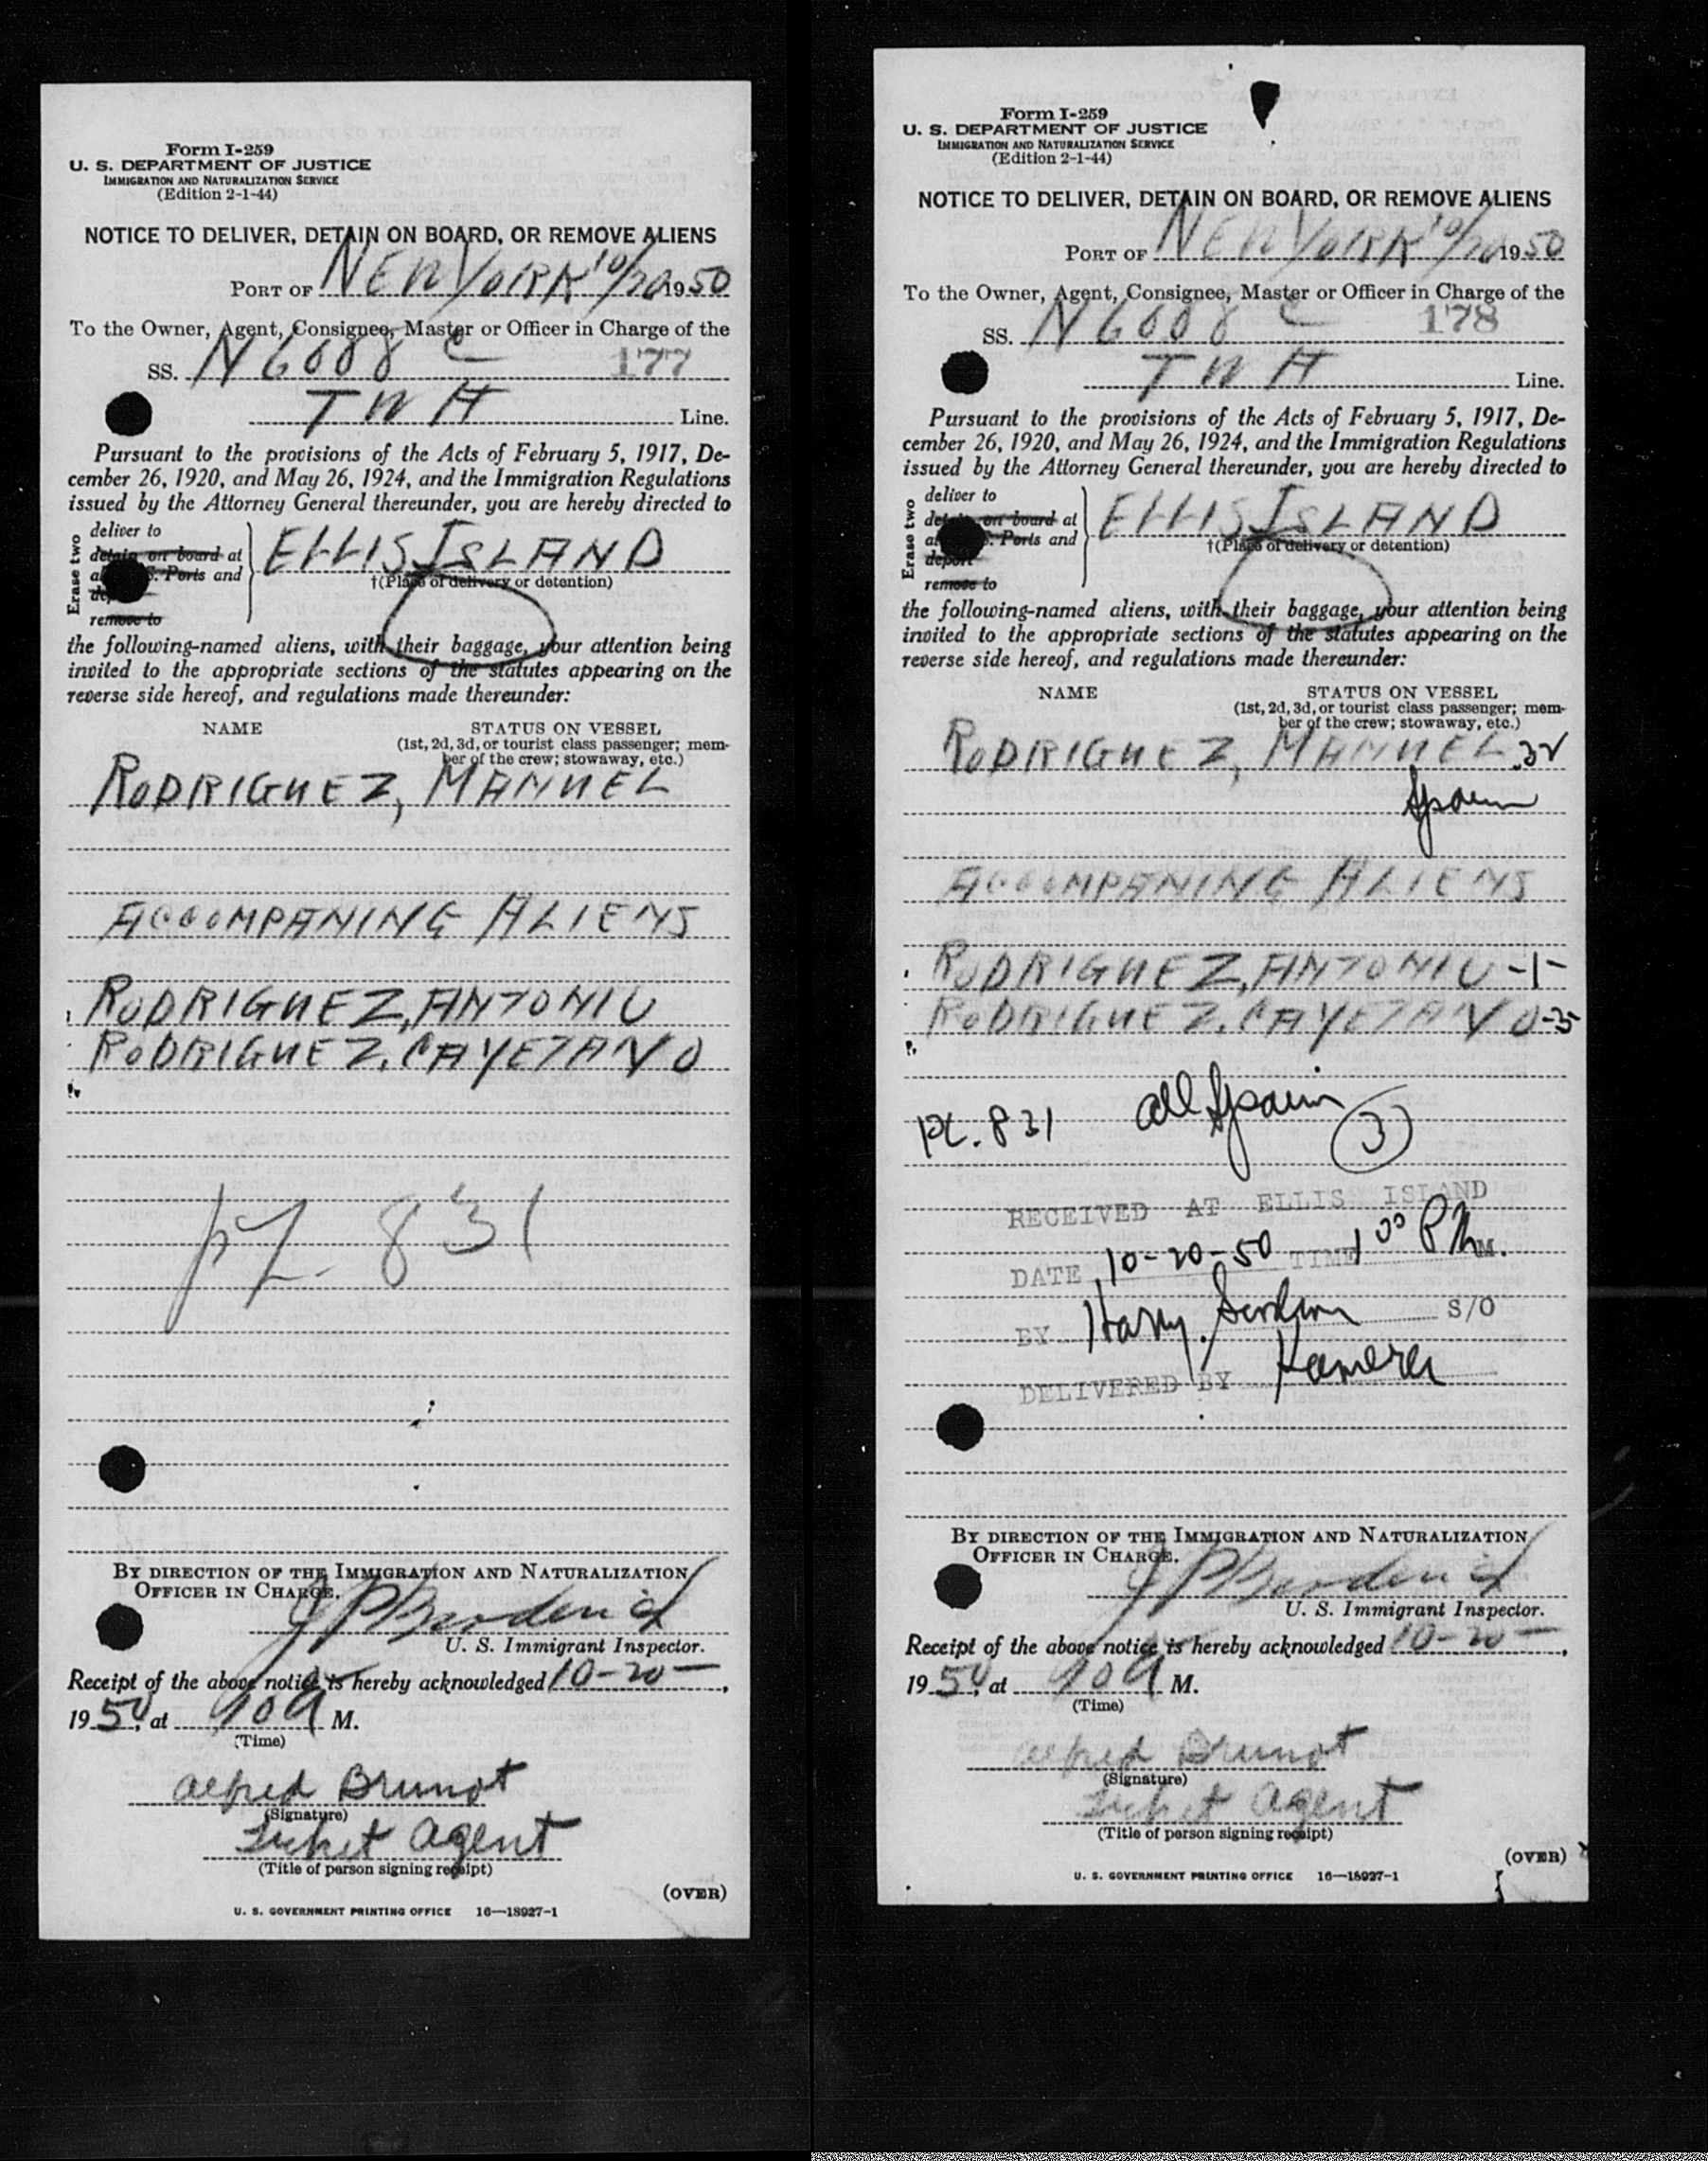 Form I-259
U. S. DEPARTMENT OF JUSTICE
IMMIGRATION AND NATURALIZATION SERVICE
(Edition 2-1-44)
NOTICE TO DELIVER, DETAIN ON BOARD, OR REMOVE ALIENS
PORT OF NEW YORK 10/20 1950
To the Owner, Agent, Consignee, Master or Officer in Charge of the
SS. N 6008 C 177
TWA Line.
Pursuant to the provisions of the Acts of February 5, 1917, De-
cember 26, 1920, and May 26, 1924, and the Immigration Regulations
issued by the Attorney General thereunder, you are hereby directed to
Erase two
deliver to
detain on board at
S. Ports and
remove to
ELLIS ISLAND
†(Place of delivery or detention)
the following-named aliens, with their baggage, your attention being
invited to the appropriate sections of the statutes appearing on the
reverse side hereof, and regulations made thereunder:
NAME STATUS ON VESSEL
(1st, 2d, 3d, or tourist class passenger; mem-
ber of the crew; stowaway, etc.)
RODRIGUEZ, MANUEL
ACCOMPANING ALIENS
RODRIGUEZ, ANTONIO
RODRIGUEZ, CAYETANO
831
BY DIRECTION OF THE IMMIGRATION AND NATURALIZATION
OFFICER IN CHARGE.
J P Broderick
U. S. Immigrant Inspector.
Receipt of the above notice is hereby acknowledged 10-20-,
1950, at 90A M.
(Time)
Alfred Brunot
(Signature)
Ticket Agent
(Title of person signing receipt)
(OVER)
U. S. GOVERNMENT PRINTING OFFICE 16—18927-1
Form I-259
U. S. DEPARTMENT OF JUSTICE
IMMIGRATION AND NATURALIZATION SERVICE
(Edition 2-1-44)
NOTICE TO DELIVER, DETAIN ON BOARD, OR REMOVE ALIENS
PORT OF NEW YORK 10/20 1950
To the Owner, Agent, Consignee, Master or Officer in Charge of the
SS. N 6008 C 178
TWA Line.
Pursuant to the provisions of the Acts of February 5, 1917, De-
cember 26, 1920, and May 26, 1924, and the Immigration Regulations
issued by the Attorney General thereunder, you are hereby directed to
Erase two
deliver to
on board at
S. Ports and
deport
remove to
ELLIS ISLAND
†(Place of delivery or detention)
the following-named aliens, with their baggage, your attention being
invited to the appropriate sections of the statutes appearing on the
reverse side hereof, and regulations made thereunder:
NAME STATUS ON VESSEL
(1st, 2d, 3d, or tourist class passenger; mem-
ber of the crew; stowaway, etc.)
RODRIGUEZ, MANUEL 32
Spain
ACCOMPANING ALIENS
RODRIGUEZ, ANTONIO -1-
RODRIGUEZ, CAYETANO -3-
831 all Spain
3
RECEIVED AT ELLIS ISLAND
DATE 10-20-50 TIME 1 00 P M.
BY Harry S/O
DELIVERED BY
BY DIRECTION OF THE IMMIGRATION AND NATURALIZATION
OFFICER IN CHARGE.
J P Broderick
U. S. Immigrant Inspector.
Receipt of the above notice is hereby acknowledged 10-20-,
1950, at 90A M.
(Time)
Alfred Brunot
(Signature)
Ticket Agent
(Title of person signing receipt)
(OVER)
U. S. GOVERNMENT PRINTING OFFICE 16—18927-1